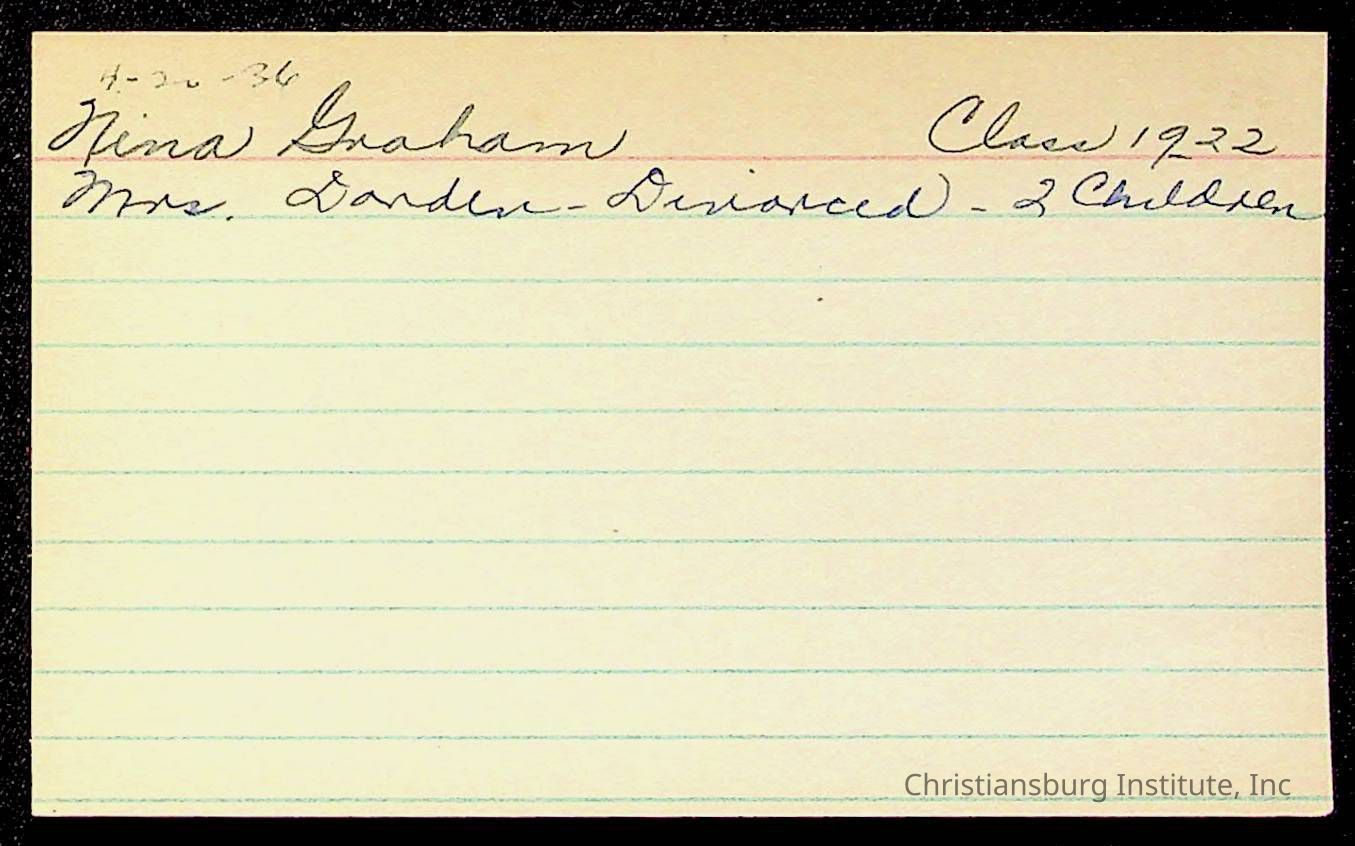 4-20-36
Nina Graham Class 1922
Mrs. Darden - Divorced - 2 Children
Christiansburg Institute, Inc